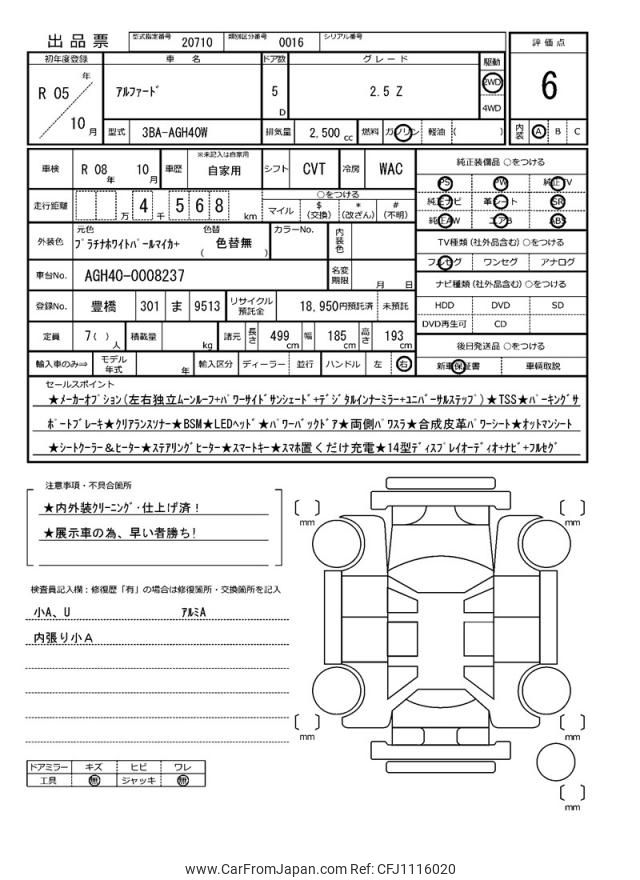 出品票 型式指定番号 20710 類別区分番号 0016 シリアル番号
評価点
6
内装 A B C
初年度登録 車名 ドア数 グレード 駆動
R 05 年 10 月 アルファード 5 D 2.5 Z 2WD 4WD
型式 3BA-AGH40W 排気量 2,500 cc 燃料 ガソリン 軽油 ( )
車検 R 08 年 10 月 車歴 ※未記入は自家用 自家用 シフト CVT 冷房 WAC
走行距離 万 4 千 5 6 8 km ○をつける
マイル $ (交換) * (改ざん) # (不明)
外装色 元色 プラチナホワイトパールマイカ+ 色替 ( 色替無 ) カラーNo. 内装色
車台No. AGH40-0008237 名変期限 月 日
登録No. 豊橋 301 ま 9513 リサイクル預託金 18,950円預託済 未預託
定員 7( ) 人 積載量 kg 諸元 長さ 499 cm 幅 185 cm 高さ 193 cm
輸入車のみ⇒ モデル年式 年 輸入区分 ディーラー 並行 ハンドル 左 右
純正装備品 ○をつける
PS PW 純正TV
純正ナビ 革シート SR
純正AW エアB ABS
TV種類 (社外品含む) ○をつける
フルセグ ワンセグ アナログ
ナビ種類 (社外品含む) ○をつける
HDD DVD SD
DVD再生可 CD
後日発送品 ○をつける
新車保証書 車輌取説
セールスポイント
★メーカーオプション(左右独立ムーンルーフ+パワーサイドサンシェード+デジタルインナーミラー+ユニバーサルステップ)★TSS★パーキングサ
ポートブレーキ★クリアランスソナー★BSM★LEDヘッド★パワーバックドア★両側パワスラ★合成皮革パワーシート★オットマンシート
★シートクーラー&ヒーター★ステアリングヒーター★スマートキー★スマホ置くだけ充電★14型ディスプレイオーディオ+ナビ+フルセグ
注意事項・不具合箇所
★内外装クリーニング・仕上げ済!
★展示車の為、早い者勝ち!
検査員記入欄:修復歴「有」の場合は修復箇所・交換箇所を記入
小A、U アルミA
内張り小A
ドアミラー キズ ヒビ ワレ
工具 無 ジャッキ 無
[ ] mm
[ ] mm
[ ] mm
[ ] mm
[ ] mm
www.CarFromJapan.com Ref: CFJ1116020